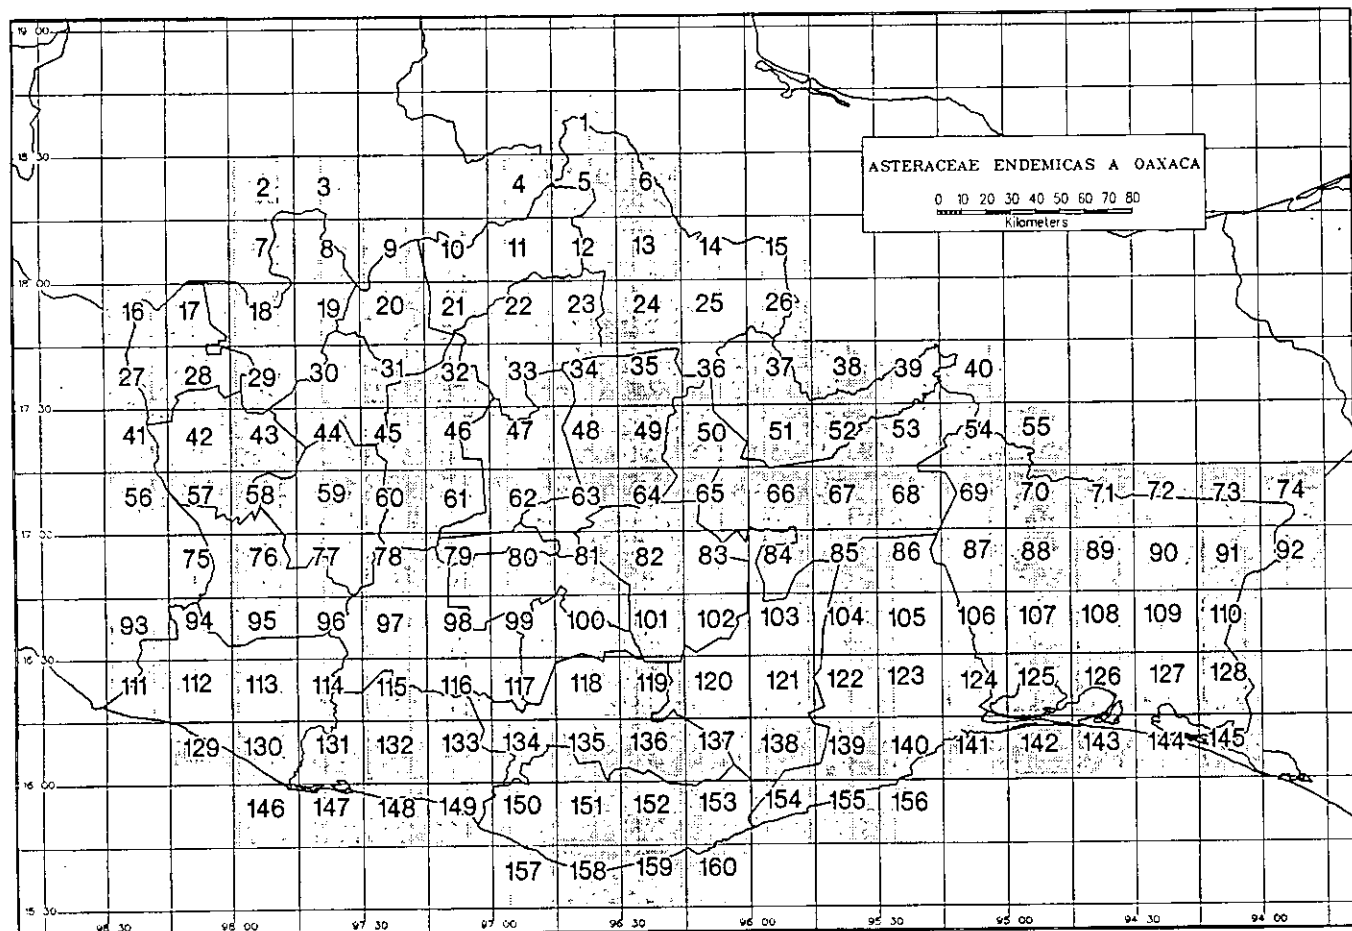 19 00
1
ASTERACEAE ENDEMICAS A OAXACA
0 10 20 30 40 50 60 70 80
Kilometers
18 30
2 3 4 5 6
7 8 9 10 11 12 13 14 15
18 00
16 17 18 19 20 21 22 23 24 25 26
27 28 29 30 31 32 33 34 35 36 37 38 39 40
17 30
41 42 43 44 45 46 47 48 49 50 51 52 53 54 55
56 57 58 59 60 61 62 63 64 65 66 67 68 69 70 71 72 73 74
17 00
75 76 77 78 79 80 81 82 83 84 85 86 87 88 89 90 91 92
93 94 95 96 97 98 99 100 101 102 103 104 105 106 107 108 109 110
16 30
111 112 113 114 115 116 117 118 119 120 121 122 123 124 125 126 127 128
129 130 131 132 133 134 135 136 137 138 139 140 141 142 143 144 145
16 00
146 147 148 149 150 151 152 153 154 155 156
157 158 159 160
15 30
98 30 98 00 97 30 97 00 96 30 96 00 95 30 95 00 94 30 94 00